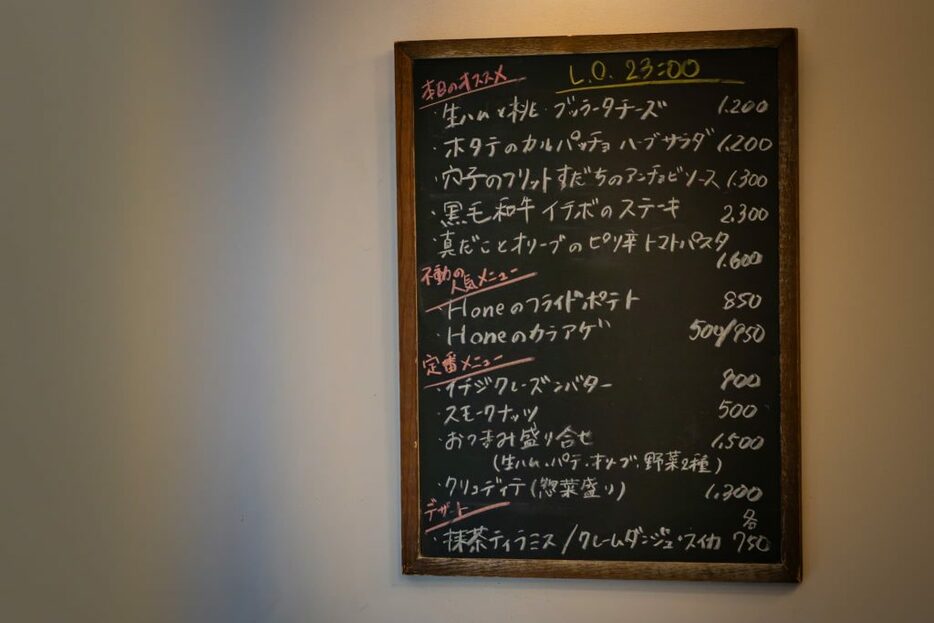 本日のオススメ L.O. 23:00
・生ハムと桃・ブッラータチーズ 1.200
・ホタテのカルパッチョ ハーブサラダ 1.200
・穴子のフリット すだちのアンチョビソース 1.300
・黒毛和牛 イチボのステーキ 2.300
・真だことオリーブのピリ辛トマトパスタ
1.600
不動の
人気メニュー
・Honeのフライドポテト 850
・Honeのカラアゲ 500/950
定番メニュー
・イチジクレーズンバター 700
・スモークナッツ 500
・おつまみ盛り合せ 1,500
(生ハム・パテ・オリーブ・野菜2種)
・クリュディテ(惣菜盛り) 1,300
デザート 各
・抹茶ティラミス/クレームダンジュ・スイカ 750